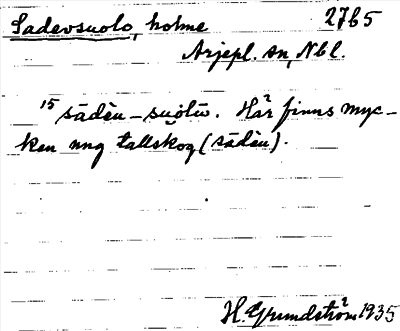 Sadevsuolo, holme 2765
Arjepl. sn, Nbl.
15 sāděu – suŏlu. Här finns myc-
ken ung tallskog (sāděu).
H. Grundström 1935